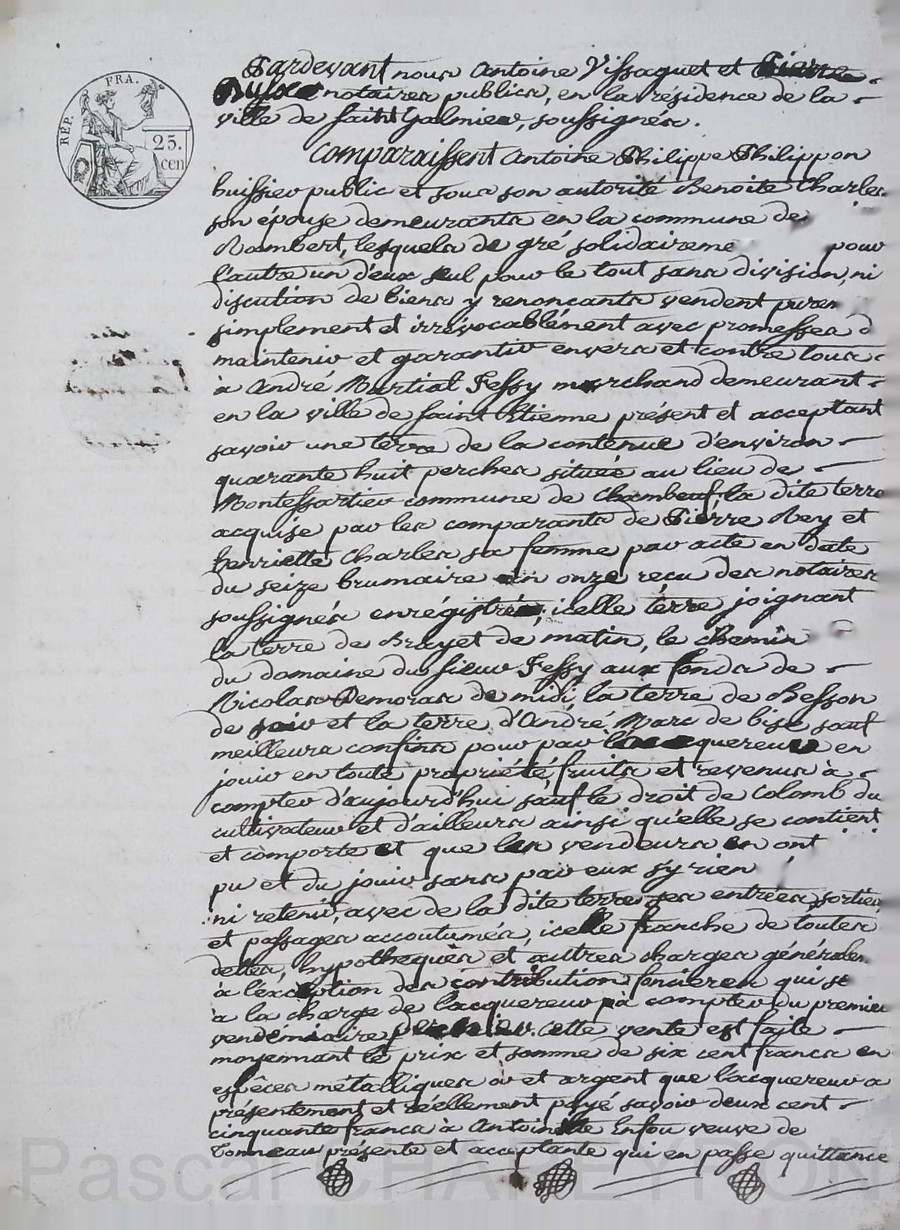 RÉP. FRA.
25.
cen
Pardevant nous Antoine Vissaguet et Pierre
notaires publics, en la résidence de la
ville de Saint Galmier, soussignés.
Comparaissent Antoine Philippe Philippon
huissier public et sous son autorité Benoite Charles
son épouse demeurants en la commune de
Rambert, lesquels de gré solidaireme pour
l'autre un d'eux seul pour le tout sans division, ni
discution de biens y renonçants vendent purem
simplement et irrévocablement avec promesses d
maintenir et garantir envers et contre tous
à André Martial Fessy marchand demeurant
en la ville de Saint Etienne présent et acceptant
savoir une terre de la contenue d'environ
quarante huit perches située au lieu de
Montessartier commune de Chambeuf, la dite terre
acquise par les comparants de Pierre Rey et
henriette Charles sa femme par acte en date
du seize brumaire an onze reçu des notaires
soussignés enrégistré, icelle terre joignant
la terre de Brayet de matin, le chemin
du domaine du sieur Fessy aux fonds de
Nicolas Demoras de midi, la terre de Besson
de soir et la terre d'André Marc de bise sauf
meilleurs confins pour par l'acquereur en
jouir en toute propriété, fruits et revenus à
compter d'aujourd'hui sauf le droit de Colomb du
cultivateur et d'ailleurs ainsi qu'elle se contient
et comporte et que les vendeurs en ont
pu et du jouir sans par eux s'y rien
ni retenir, avec de la dite terre ses entrées, sorties
et passages accoutumés, icelle franche de toutes
dettes, hypotheques et autres charges générales
à l'exception des contribution foncieres qui se
à la charge de l'acquereur à compter du premier
vendémiaire dernier. Cette vente est faite
moyennant le prix et somme de six cent francs en
espêces métalliques or et argent que l'acquereur a
présentement et réellement payé savoir deux cent
cinquante francs à Antoinette Enfou veuve de
Tonneau présente et acceptante qui en passe quittance
Pascal CHAPEYRON